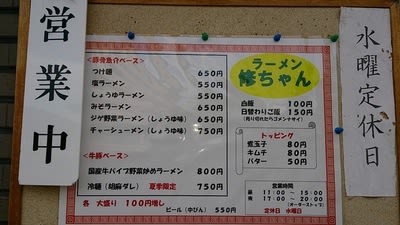 営業中
<豚骨魚介ベース>
つけ麺 650円
塩ラーメン 550円
しょうゆラーメン 550円
みそラーメン 650円
ジゲ野菜ラーメン(しょうゆ味) 650円
チャーシューメン(しょうゆ味) 750円
<牛豚ベース>
国産牛パイプ野菜炒めラーメン 800円
冷麺(胡麻ダレ) 夏季限定 750円
各 大盛り 100円増し
ビール(中びん) 550円
ラーメン
修ちゃん
白飯 100円
日替わりご飯 150円
(売り切れたらゴメンナサイ)
トッピング
煮玉子 80円
キムチ 80円
バター 50円
営業時間
昼 11:00 ~ 15:00
夜 17:00 ~ 20:00
(オーダーストップ)
定休日 水曜日
水曜定休日